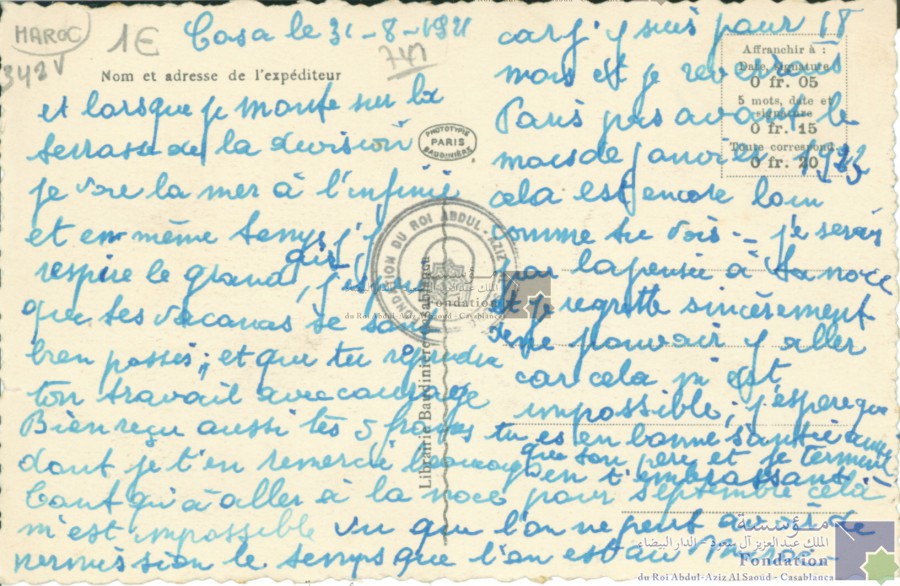 MAROC
342V
1€
747
Casa le 31-8-1921
Nom et adresse de l'expéditeur
et lorsque je monte sur la
terrasse de la division
je voie la mer à l'infinie
et en même temps j'y
respire le grand air, j'espère
que tes vacances se sont
bien passés, et que tu reprendra
ton travail avec courage
Bien reçu aussi tes 5 francs
dont je t'en remercie beaucoup
Tant qu'à aller à la noce pour septembre celà
m'est impossible vu que l'on ne peut avoir de
permission le temps que l'on est au Maroc
car j'y suis pour 18
mois et je reverrais
Paris pas avant le
mois de janvier 1923
cela est encore loin
comme tu vois - je serais
par la pensée à la noce
et je regrette sincèrement
de ne pouvoir y aller
car cela m'est
impossible, j'espère que
tu es en bonne santé ainsi
que ton père et je termine
en t'embrassant
Affranchir à :
Date, signature
0 fr. 05
5 mots, date et
signature
0 fr. 15
Toute correspond.
0 fr. 20
PHOTOTYPIE
PARIS
BAUDINIÈRE
Librairie Baudinière Casablanca
FONDATION DU ROI ABDUL-AZIZ
مؤسسة
الملك عبد العزيز آل سعود - الدار البيضاء
Fondation
du Roi Abdul-Aziz Al Saoud - Casablanca
مؤسسة
الملك عبد العزيز آل سعود - الدار البيضاء
Fondation
du Roi Abdul-Aziz Al Saoud - Casablanca